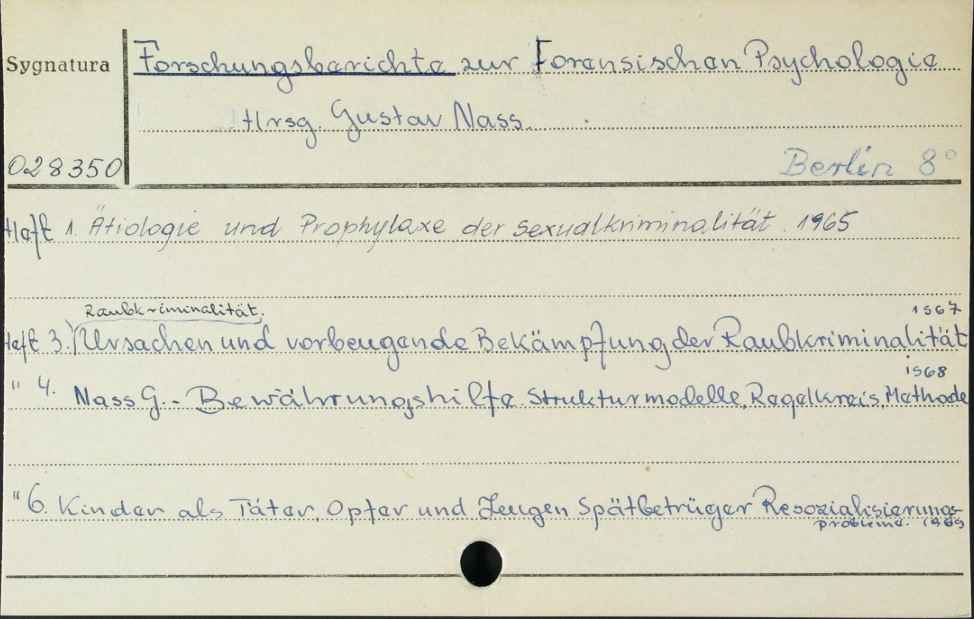 Sygnatura
Forschungsberichte zur Forensischen Psychologie
Hrsg. Gustav Nass.
028350
Berlin 8°
Heft 1. Ätiologie und Prophylaxe der Sexualkriminalität. 1965
Raubkriminalität. 1967
Heft 3.) Ursachen und vorbeugende Bekämpfung der Raubkriminalität
1968
" 4. Nass G. - Bewährungshilfe. Strukturmodelle, Regelkreis, Methode
" 6. Kinder als Täter, Opfer und Zeugen Spätbetrüger Resozialisierungs-
probleme. 1969